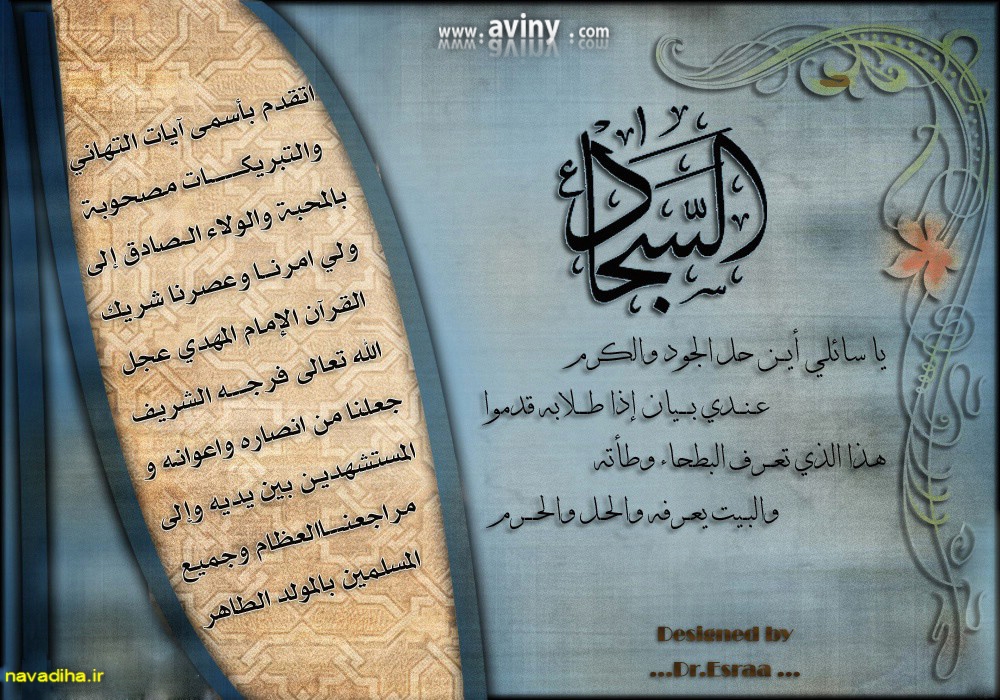 www.aviny.com
السجاد
يا سائلي أين حل الجود والكرم
عندي بيان إذا طلابه قدموا
هذا الذي تعرف البطحاء وطأته
والبيت يعرفه والحل والحرم
اتقدم بأسمى آيات التهاني
والتبريكات مصحوبة
بالمحبة والولاء الصادق إلى
ولي امرنا وعصرنا شريك
القرآن الإمام المهدي عجل
الله تعالى فرجه الشريف
جعلنا من انصاره واعوانه و
المستشهدين بين يديه وإلى
مراجعنا العظام وجميع
المسلمين بالمولد الطاهر
Designed by
...Dr.Esraa ...
navadiha.ir